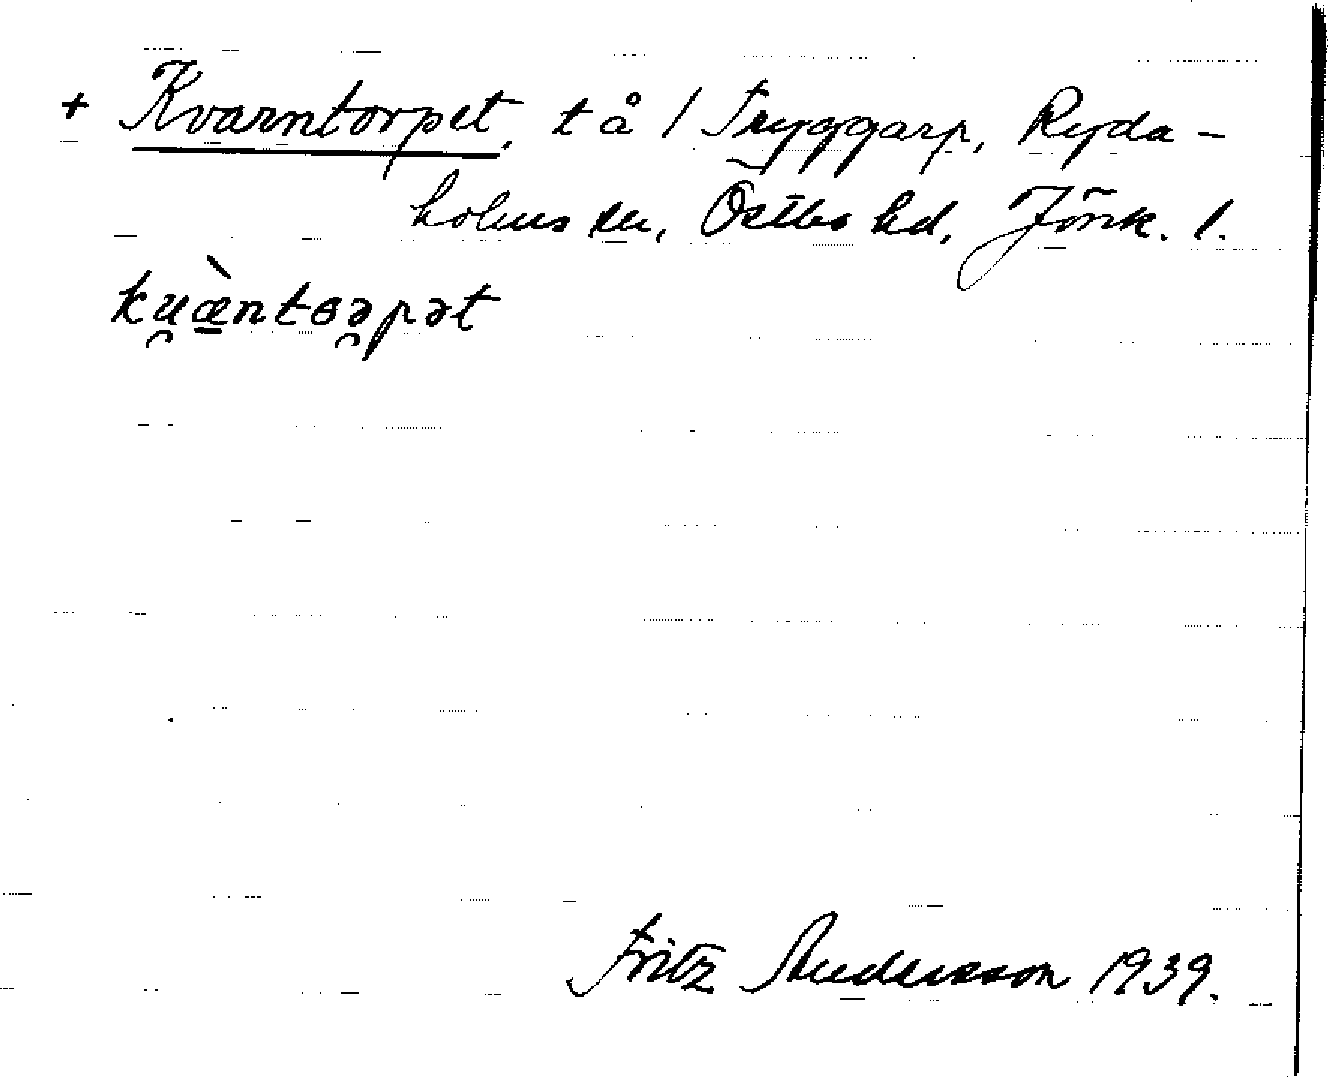 + Kvarntorpet, t å 1 Tryggarp, Ryda-
holms sn, Östbo hd, Jönk. l.
ku̯æ̀ntoə̯pət
Fritz Andersson 1939.